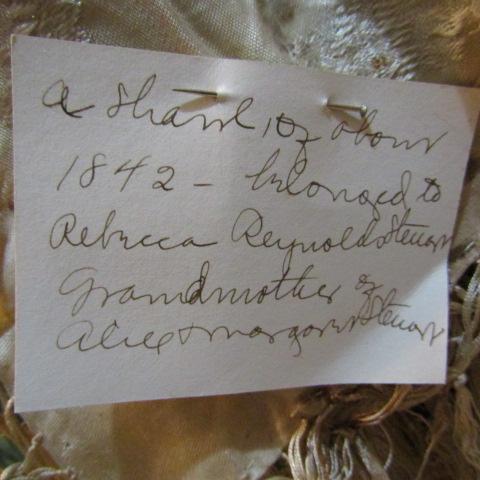 a Shawl, of about
1842 - belonged to
Rebecca Reynolds Stewart
Grandmother of
Alice & Margaret Stewart